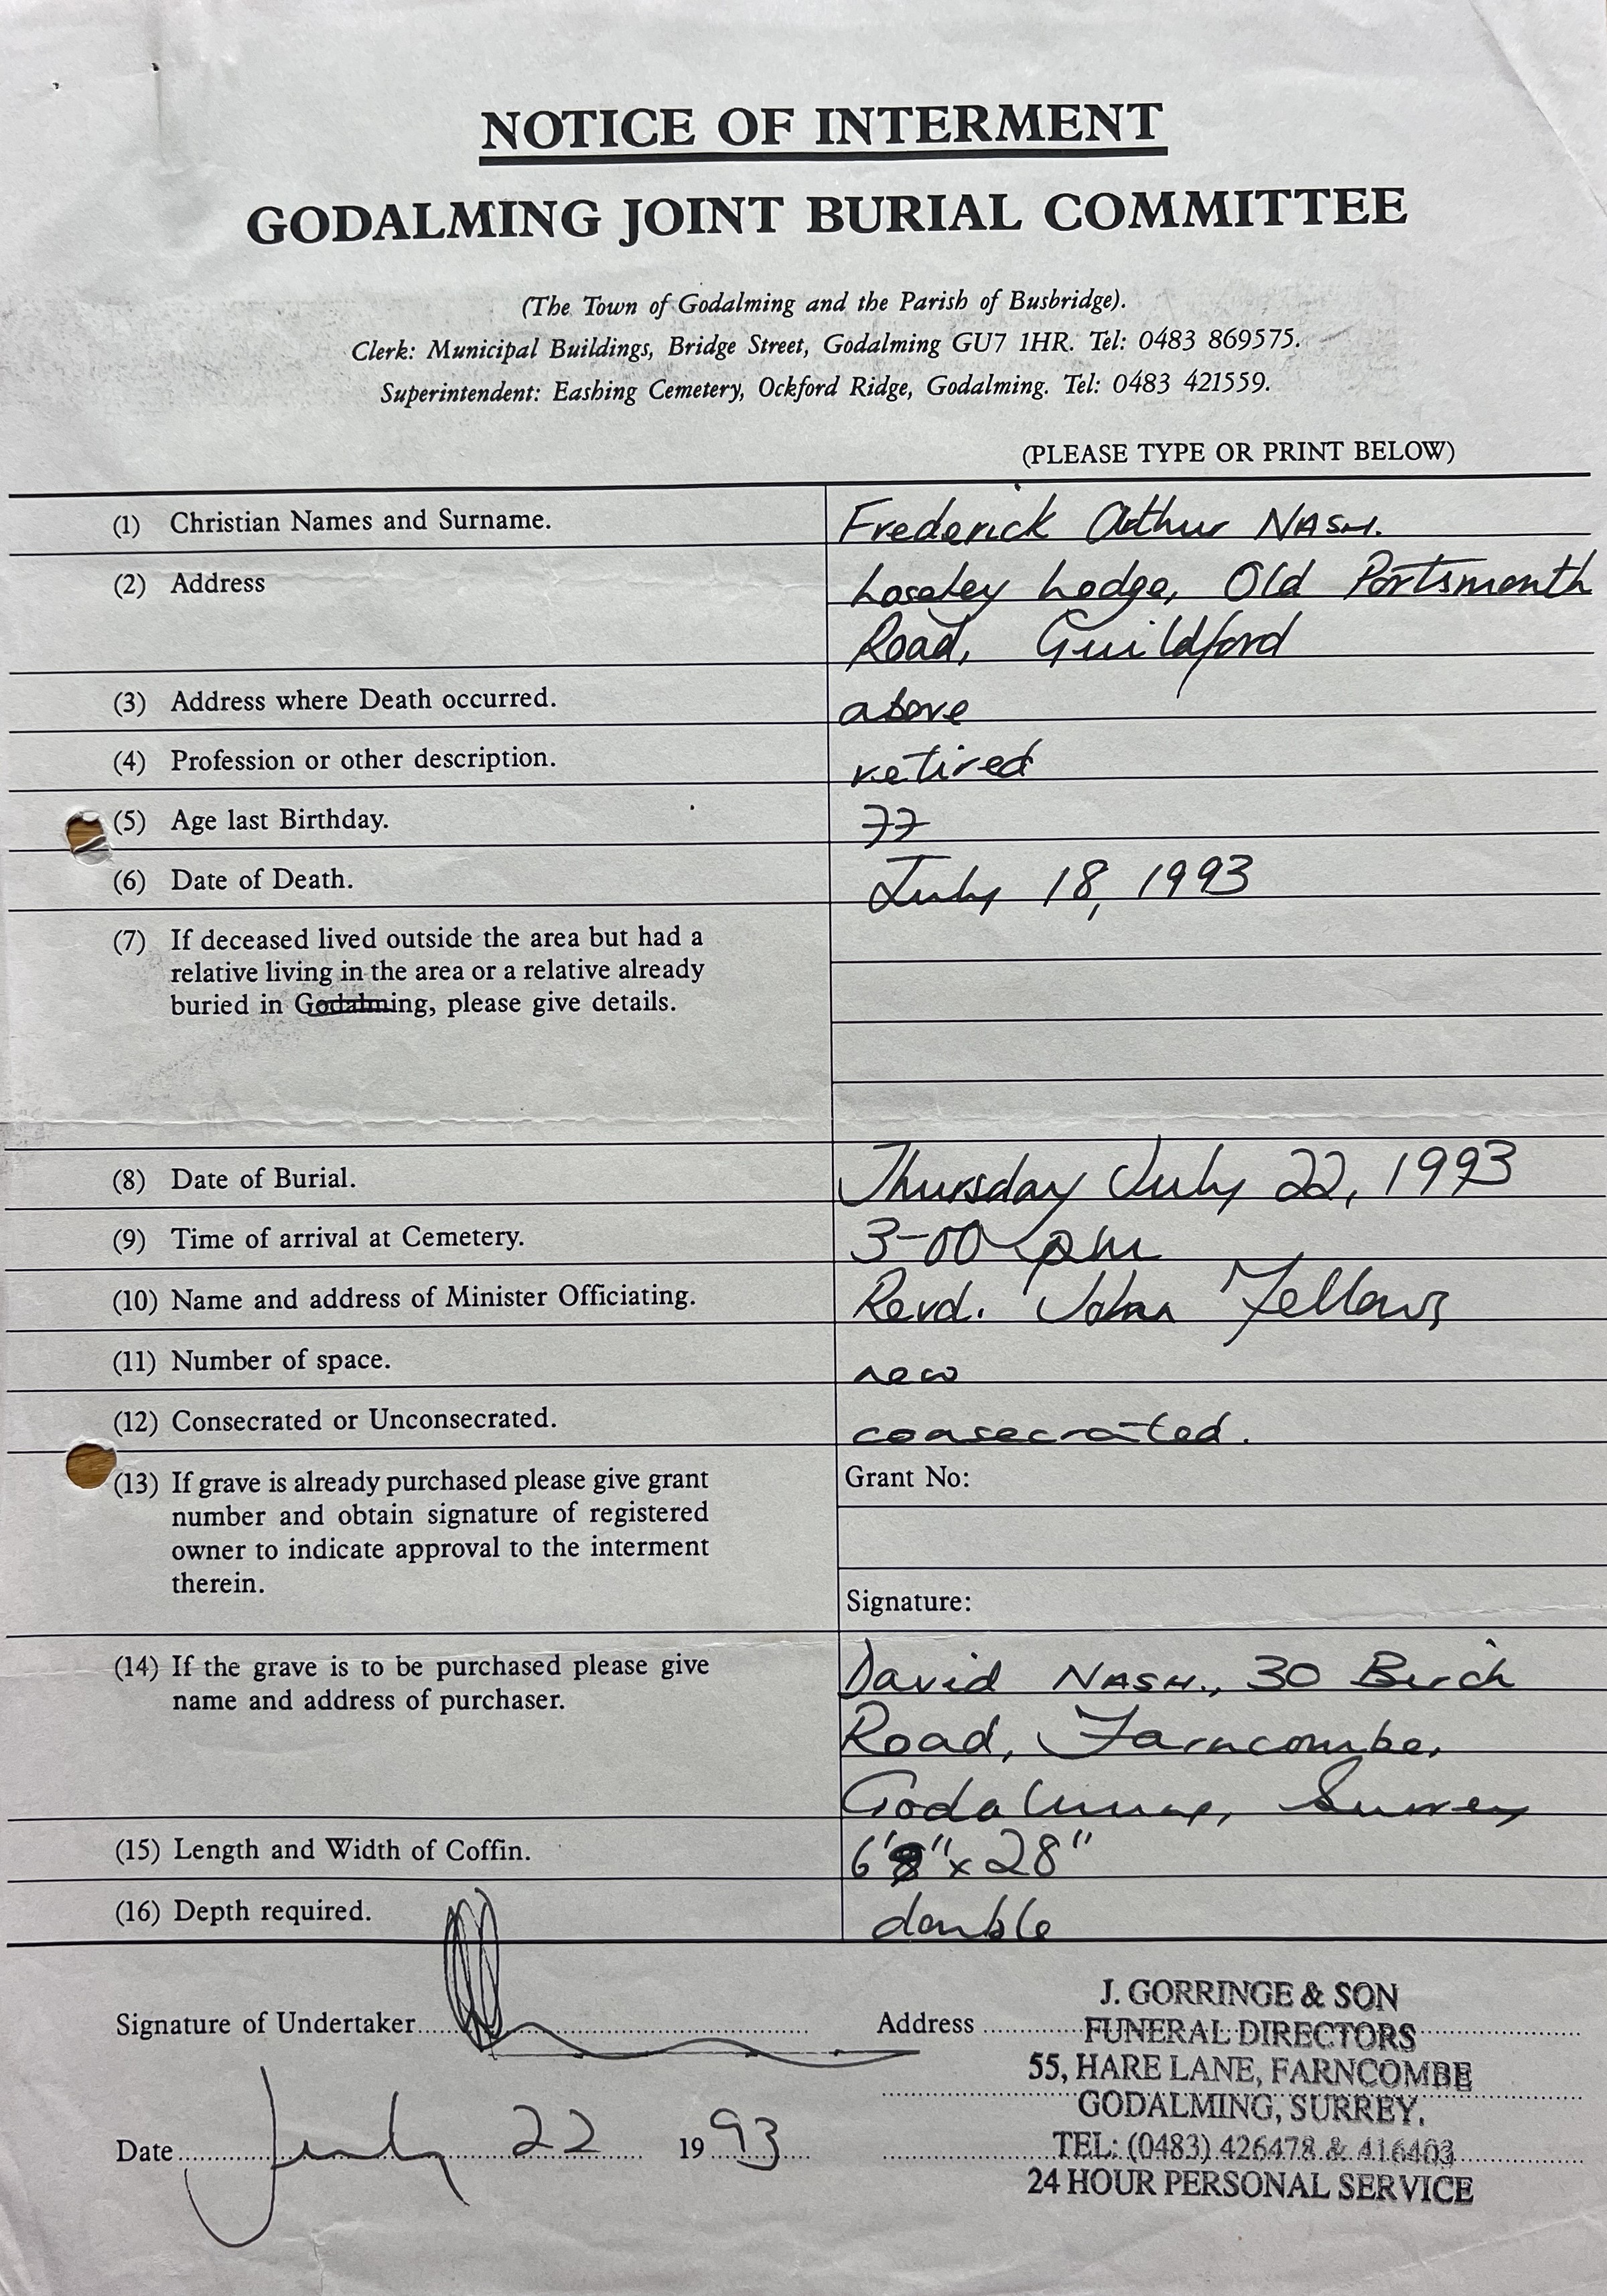 NOTICE OF INTERMENT
GODALMING JOINT BURIAL COMMITTEE
(The Town of Godalming and the Parish of Busbridge).
Clerk: Municipal Buildings, Bridge Street, Godalming GU7 1HR. Tel: 0483 869575.
Superintendent: Eashing Cemetery, Ockford Ridge, Godalming. Tel: 0483 421559.
(PLEASE TYPE OR PRINT BELOW)
(1) Christian Names and Surname. Frederick Arthur NASH.
(2) Address Loseley Lodge, Old Portsmouth
Road, Guildford
(3) Address where Death occurred. above
(4) Profession or other description. retired
(5) Age last Birthday. 77
(6) Date of Death. July 18, 1993
(7) If deceased lived outside the area but had a
relative living in the area or a relative already
buried in Godalming, please give details.
(8) Date of Burial. Thursday July 22, 1993
(9) Time of arrival at Cemetery. 3-00 pm
(10) Name and address of Minister Officiating. Revd. John Fellows
(11) Number of space. new
(12) Consecrated or Unconsecrated. consecrated.
(13) If grave is already purchased please give grant Grant No:
number and obtain signature of registered
owner to indicate approval to the interment
therein.
Signature:
(14) If the grave is to be purchased please give David NASH., 30 Birch
name and address of purchaser. Road, Farncombe,
Godalming, Surrey
(15) Length and Width of Coffin. 6'8" x 28"
(16) Depth required. double
Signature of Undertaker Address
J. GORRINGE & SON
FUNERAL DIRECTORS
55, HARE LANE, FARNCOMBE
GODALMING, SURREY.
Date July 22 1993
TEL: (0483) 426478 & 416403
24 HOUR PERSONAL SERVICE